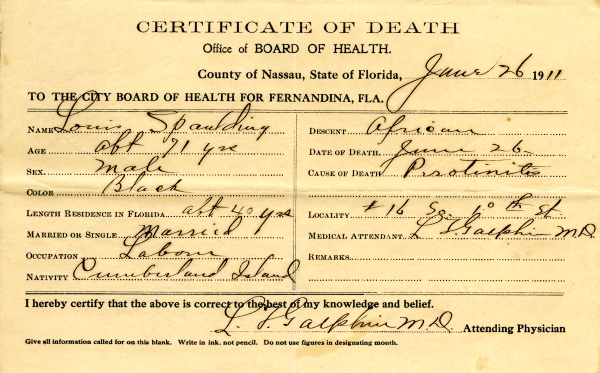 CERTIFICATE OF DEATH
Office of BOARD OF HEALTH.
County of Nassau, State of Florida, June 26 1911
TO THE CITY BOARD OF HEALTH FOR FERNANDINA, FLA.
NAME Louis Spaulding
AGE abt 71 yrs
SEX. Male
COLOR Black
LENGTH RESIDENCE IN FLORIDA abt 40 yrs
MARRIED OR SINGLE Married
OCCUPATION Labour
NATIVITY Cumberland Island
DESCENT African
DATE OF DEATH, June 26
CAUSE OF DEATH
LOCALITY #16 So. 10th St.
MEDICAL ATTENDANT. L S Galphin M.D.
REMARKS
I hereby certify that the above is correct to the best of my knowledge and belief.
L. S. Galphin M.D. Attending Physician
Give all information called for on this blank. Write in ink, not pencil. Do not use figures in designating month.